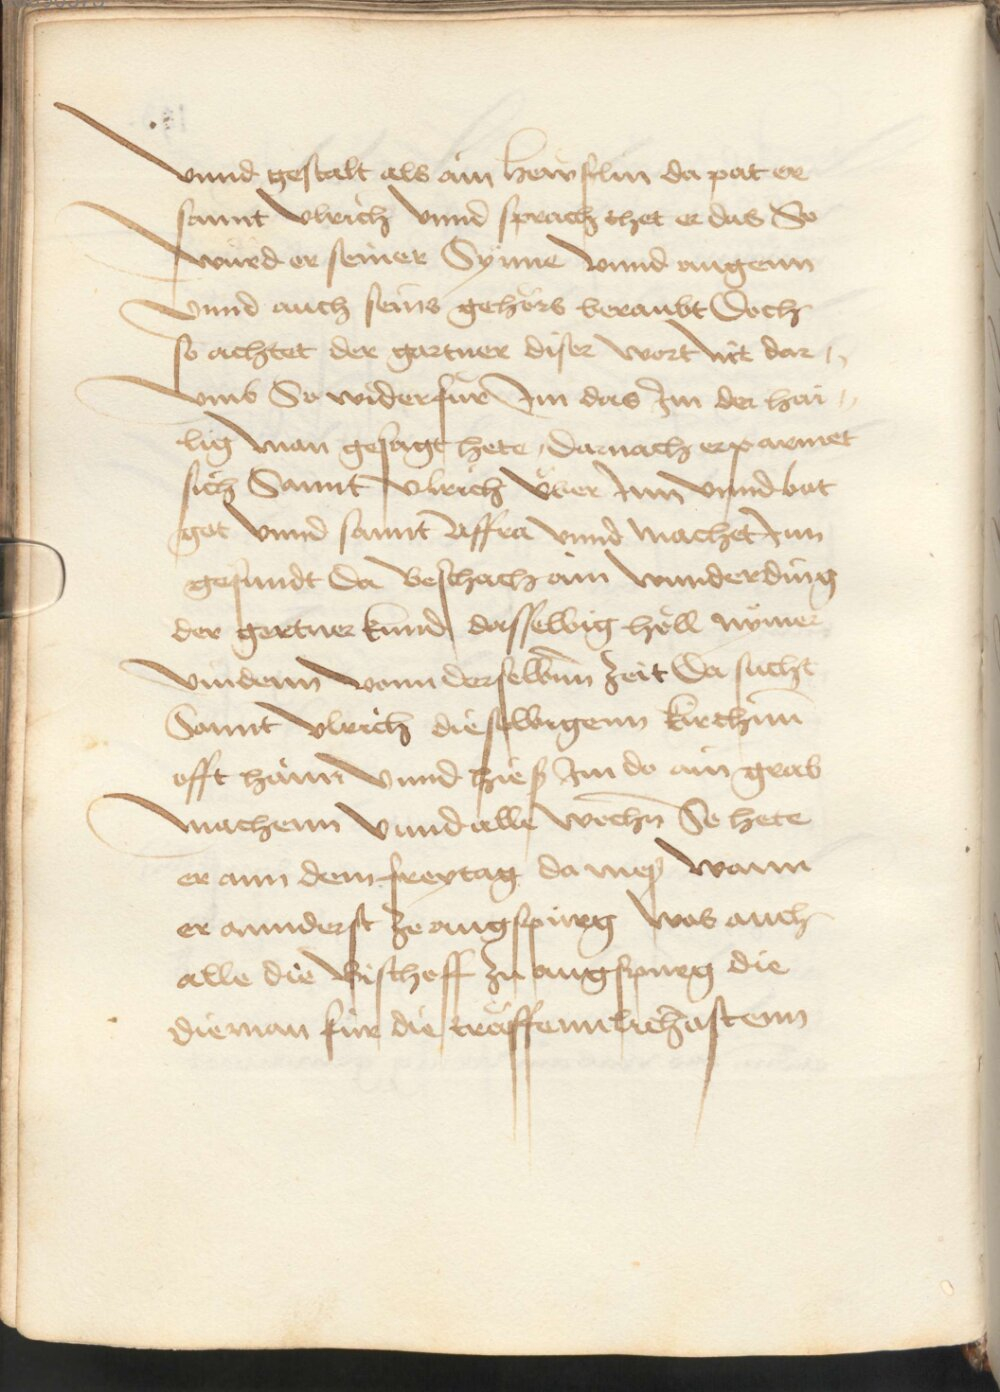 vnnd gestalt als ain hewslin da pat er
sannt vlrich vnnd sprach thet er das So
wurd er seiner Synne vnnd augenn
vnnd auch seins gehörs beraubt Doch
so achtet der gartner diser wort nit dar-
vmb So widerfur Im das Im der hai-
lig man gesagt hete, darnach erparmet
sich Sannt vlrich über Inn vnnd bat
got vnnd sannt Affra vnnd machet Inn
gesundt Da beschach ain wunderding
der gertner kund dasselbig höll nÿmer
vindenn vonn derselbenn Zeit Da sucht
Sannt vlrich dieselbigenn kirchinn
offt haim vnnd hieß Im do ain grab
machenn vnnd alle wochn So hete
er ann dem freytag da meß wann
er annderst ze augspurg was auch
alle die bischoff zu augspurg die
die man für die träffennlichastenn